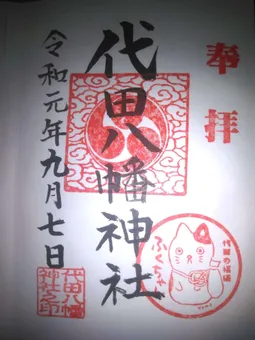 奉拝
代田八幡神社
令和元年九月七日
代田八幡
神社之印
ふくちゃん